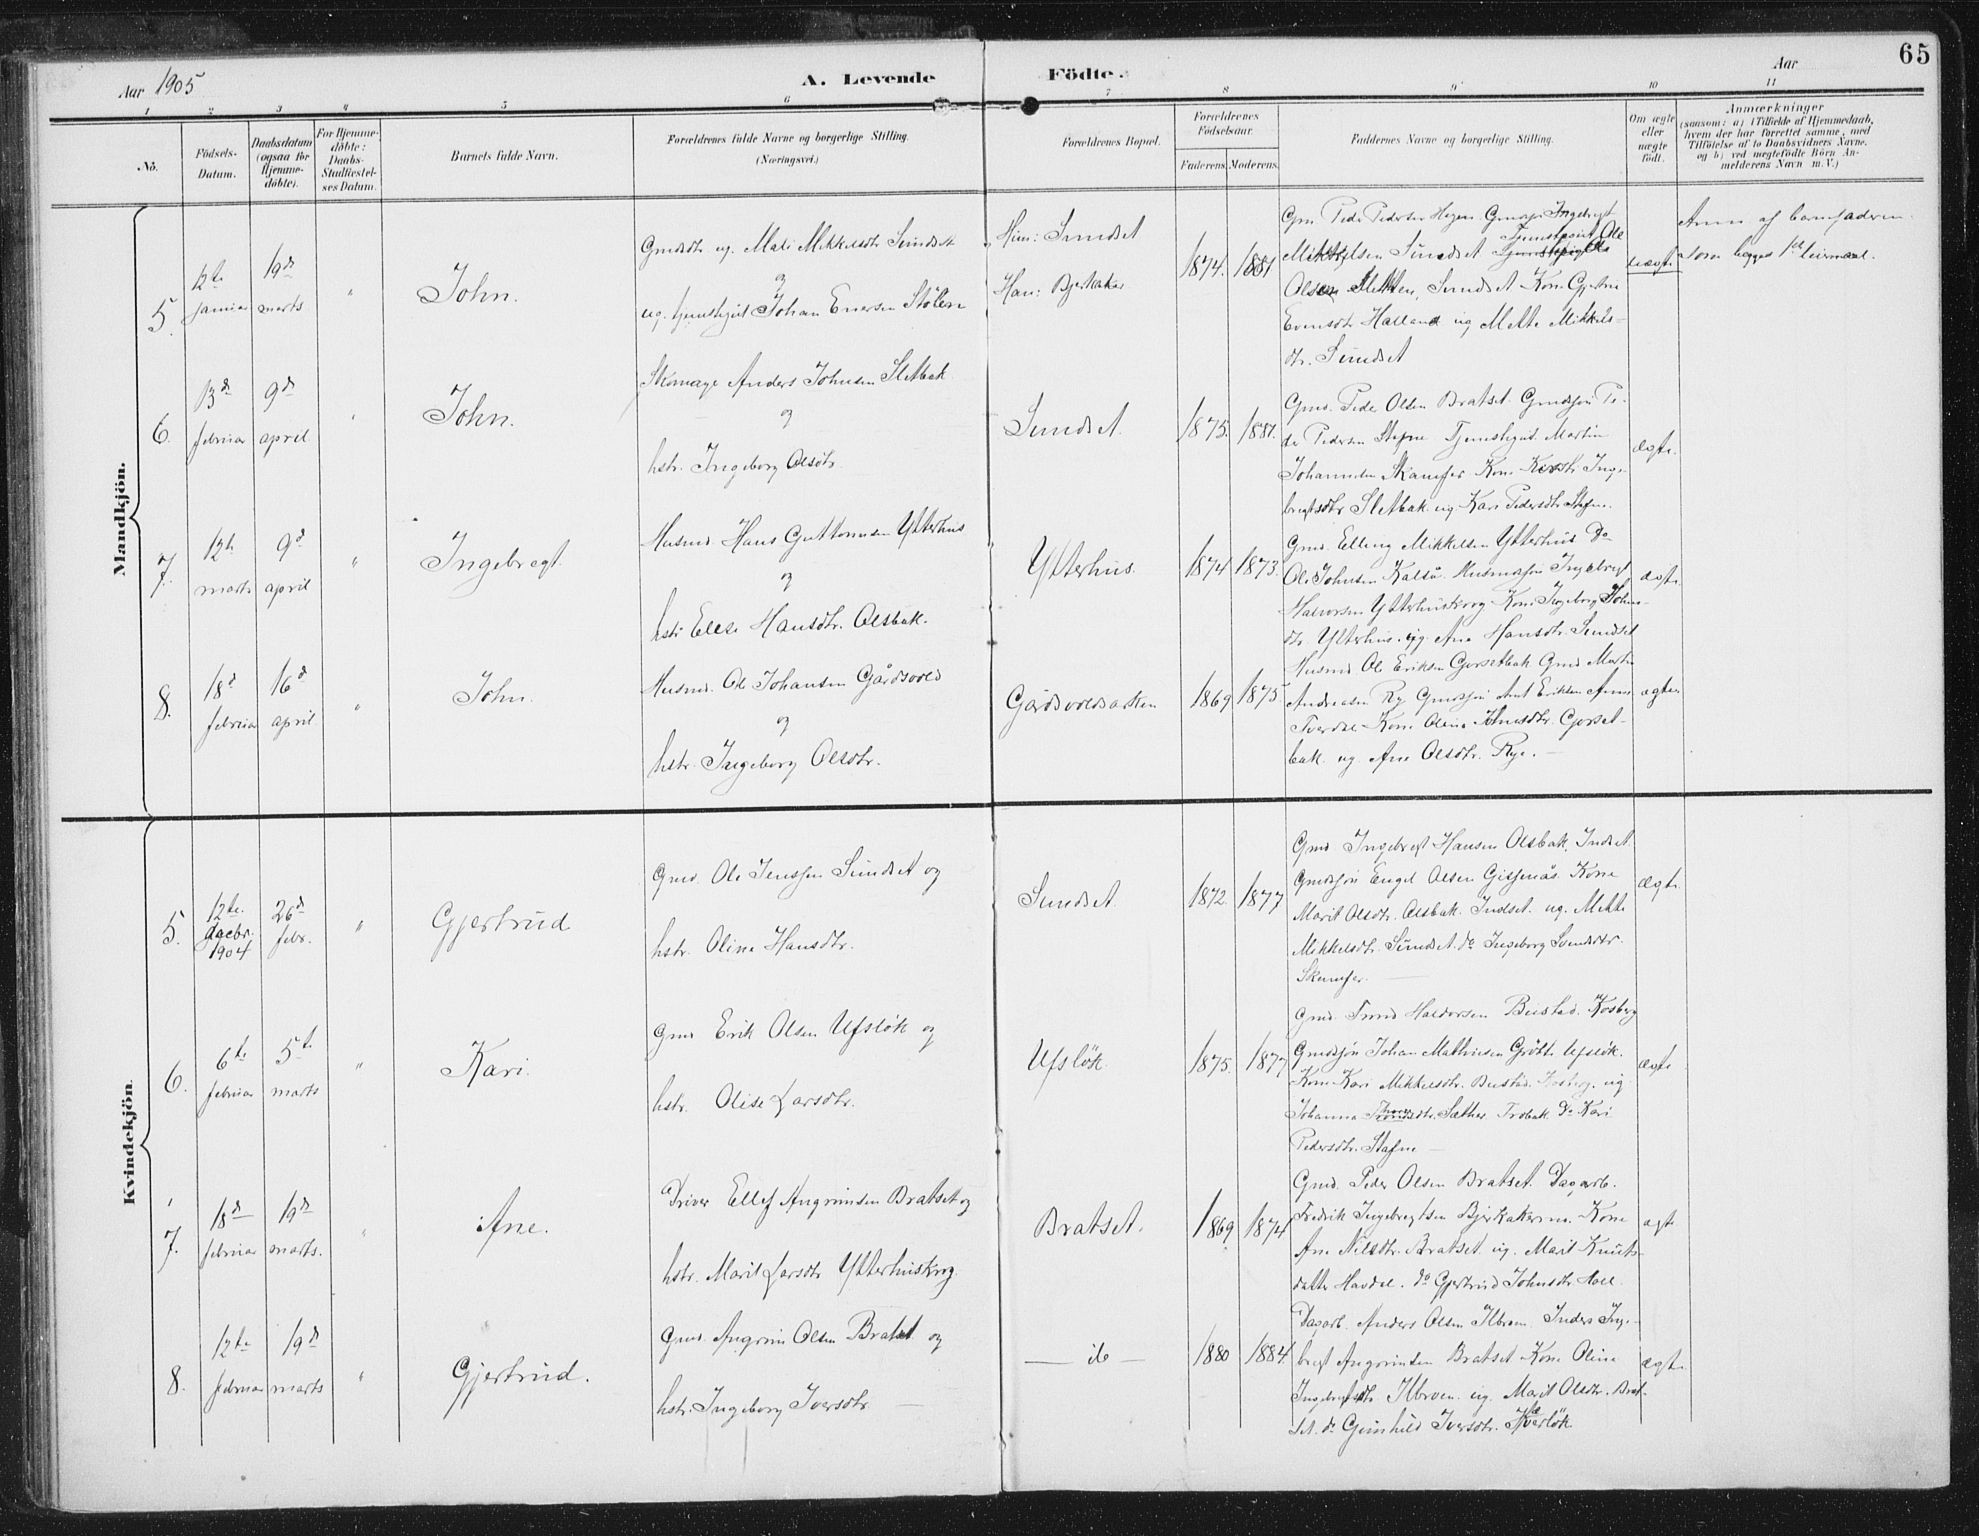 65
Aar 1905
A. Levende
Födte.
Aar
1 2 3 4 5 6 7 8 9 10 11
No.
Födsels-
Datum.
Daabsdatum
(ogsaa for
Hjemme-
döbte).
For Hjemme-
döbte:
Daabs-
Stadfæstel-
ses Datum.
Barnets fulde Navn.
Forældrenes fulde Navne og borgerlige Stilling.
(Næringsvei.)
Forældrenes Bopæl.
Forældrenes
Födselsaar.
Faderens. Moderens.
Faddernes Navne og borgerlige Stilling.
Om ægte
eller
uægte
födt.
Anmærkninger
(saasom: a) i Tilfælde af Hjemmedaab,
hvem der har forrettet samme, med
Tilföielse af to Daabsvidners Navne,
og b) ved uægtefödte Börn An-
melderens Navn m. V.)
Mandkjön.
5.
12te
januar
19de
marts
"
John.
Gmdsdtr ug. Mali Mikkelsdtr Sundset
og
ug. tjenstgut Johan Enersen Stölen
Hun: Sundset
Han: Bjerkaker
1874. 1881
Gm. Peder Pedersen Hagen Gmdsøn Ingebregt
Mikkelsen Sundset Tjenstgut Ole
Olsen Sletten, Sundset Kone Gjertine
Evensdtr Halland ug. Mette Mikkels-
dtr. Sundset
uægte
Ann af barnefaderen.
foren begges 1ste leiermaal.
6.
13de
februar
9de
april
"
John.
Skomager Anders Johnsen Sletbak
og
hstr. Ingeborg Olsdtr.
Sundset.
1875. 1881.
Gmd. Peder Olsen Bratset. Gmdsøn Pe-
der Pedersen Stafne Tjenstgut. Martin
Johannesen Skamfer Kone Kirsti Inge-
bregtsdtr Sletbak ug. Kari Pedersdtr Stafne.
ægte.
7.
12te
marts
9de
april
"
Ingebregt.
Husmd. Hans Guttormsen Ytterhus
og
hstr Elise Hansdtr. Olsbak.
Ytterhus.
1874 1873.
Gmd. Elling Mikkelsen Ytterhus Do
Ole Johnsen Kalsö. Husmdsøn Ingebregt
Halvorsen Ytterhuskrog Kone Ingeborg Johns-
dtr. Ytterhus. ug. Ane Hansdtr. Sundset
ægte
8.
18de
februar
16de
april
"
John.
Husmd. Ole Johansen Gårdsvold
og
hstr. Ingeborg Olsdtr.
Gårdsvoldsaken
1869 1875
Husmd Ole Eriksen Gorsetbak Gmd Martin
Andreasen Ry Gmdsøn Arnt Eriksen Aune
Tverdal Kone Oline Johnsdtr. Gorset-
bak. ug. Ane Olsdtr. Rye. —
ægte
Kvindekjön.
5.
12te.
decbr.
1904
26de
febr.
"
Gjertrud
Gmd. Ole Jenssen Sundset og
hstr. Oline Hansdtr.
Sundset.
1872. 1877
Gmd. Ingebregt Hansen Olsbak. Indset.
Gmdsøn Engel Olsen Gisnås. Kone
Marit Olsdtr. Olsbak. Indset. ug. Mette
Mikkelsdtr. Sundset. do Ingeborg Svendsdtr.
Skamfer. —
ægte
6.
6te
februar
5te
marts
"
Kari.
Gmd Erik Olsen Ufsløk og
hstr. Olise Larsdtr.
Ufsløk.
1875. 1877
Gmd. Trond Haldorsen Bustad. Kosberg
Gmdsøn Johan Mathiesen Grötte Ufsløk.
Kone Kari Mikkelsdtr. Bustad. Kosberg. ug.
Johanna Thoresdtr. Sæther Trobak Do Kari
Pedersdtr. Stafne —
ægte
7.
18de
februar
19de
marts.
"
Ane.
Driver Ellef Angrimsen Bratset og
hstr. Marit Larsdtr Ytterhuskrog.
Bratset.
1869 1874
Gmd. Peder Olsen Bratset. Dagarb.
Fredrik Ingebregtsen Bjerkakermo. Kone
Ane Nilsdtr. Bratset. ug. Marit Knuts-
datter Havdal. do Gjertrud Johnsdtr. Hoel.
ægte
8.
12te
februar
19de
marts
"
Gjertrud.
Gmd. Angrim Olsen Bratset og
hstr. Ingeborg Iversdtr —
— do —
1880 1884.
Dagarb. Anders Olsen Ilbroen. Inders Inge-
bregt Angrimsen Bratset Kone Oline
Ingebregtsdtr. Ilbroen. ug. Marit Olsdtr. Brat-
set. do Gunhild Iversdtr. Hverløk
ægte